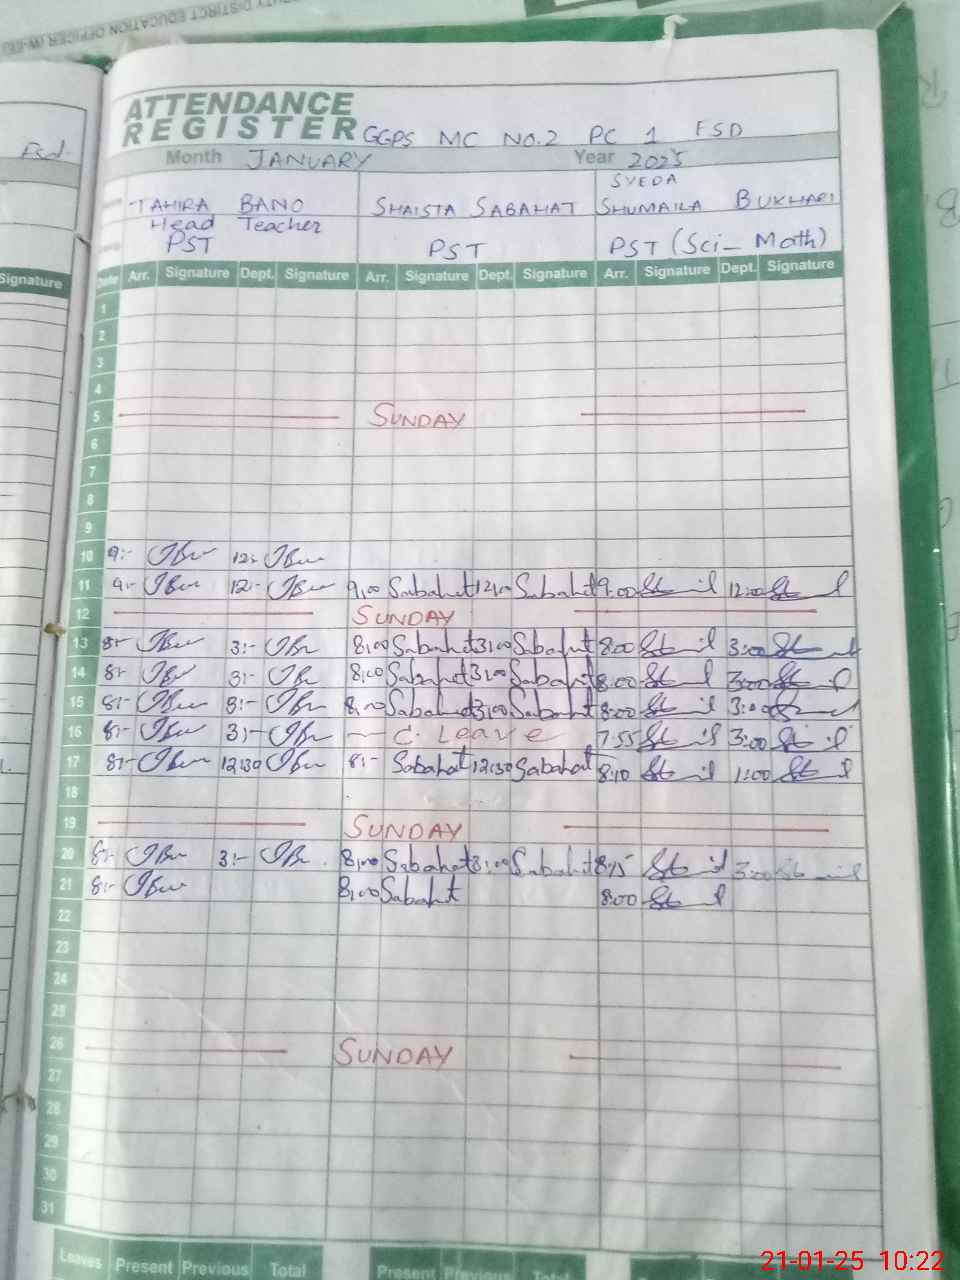 DISTIRCT EDUCATION OFFICER (W-EE)
Fsd.
Signature
ATTENDANCE
REGISTER GGPS MC NO.2 PC 1 FSD
Month JANUARY Year 2025
TAHIRA BANO SHAISTA SABAHAT SYEDA SHUMAILA BUKHARI
Head Teacher
PST PST PST (Sci- Math)
Arr. Signature Dept. Signature Arr. Signature Dept. Signature Arr. Signature Dept. Signature
1
2
3
4
5 SUNDAY
6
7
8
9
10 9:- 12:-
11 9:- 12:- 9,00 Sabahat 12,00 Sabahat 9:00 12:00
12 SUNDAY
13 8:- 3:- 8,00 Sabahat 3,00 Sabahat 8:00 3:00
14 8:- 3:- 8,00 Sabahat 3,00 Sabahat 8:00 3:00
15 8:- 3:- 8,00 Sabahat 3,00 Sabahat 8:00 3:00
16 8:- 3:- C. Leave 7:55 3:00
17 8:- 12:30 8:- Sabahat 12:30 Sabahat 8:10 1:00
18
19 SUNDAY
20 8:- 3:- 8,00 Sabahat 3,00 Sabahat 8:15 3:00
21 8:- 8,00 Sabahat 8:00
22
23
24
25
26 SUNDAY
27
28
29
30
31
Leaves Present Previous Total Present Previous Total
21-01-25 10:22